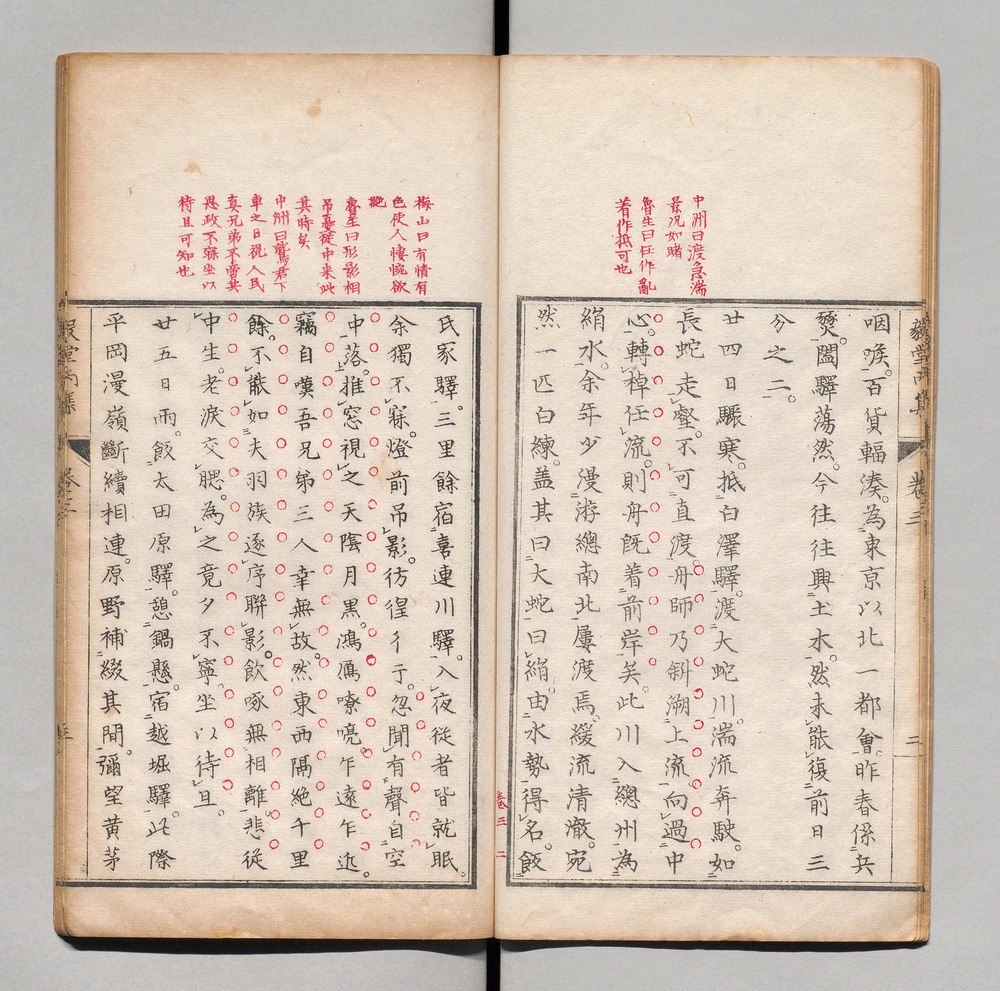 中洲曰渡急湍
景況如睹
魯生曰任作亂
著作抵可也
咽喉百貨輻湊為東京以北一都會昨春係兵
燹闔驛蕩然今往往興土木然未能復前日三
分之二
廿四日驟寒抵白澤驛渡大蛇川湍流奔駛如
長蛇走壑不可直渡舟師乃斜溯上流向過中
心轉棹任流則舟既着前岸矣此川入總州為
絹水余年少漫游總南北屢渡焉緩流清澈宛
然一匹白練蓋其曰大蛇曰絹由水勢得名飯
卷三
三
卷三 二
梅山曰有情有
色使人悽惋欲
絕
魯生曰形影相
吊憂從中來此
其時矣
中洲曰鷲君下
車之日視人民
真兄弟不啻其
愚政不寐坐以
待旦可知也
氏家驛三里餘宿喜連川驛入夜從者皆就眠
余獨不寐燈前吊影彷徨彳亍忽聞有聲自空
中落推窓視之天陰月黑鴻鴈嘹喨乍遠乍近
竊自嘆吾兄弟三人幸無故然東西隔絶千里
餘不能如夫羽族逐序聯影飲啄無相離悲從
中生老淚交腮為之竟夕不寧坐以待旦
廿五日雨飯太田原驛憩鍋懸宿越堀驛此際
平岡漫嶺斷續相連原野補綴其間彌望黃茅
卷三
三